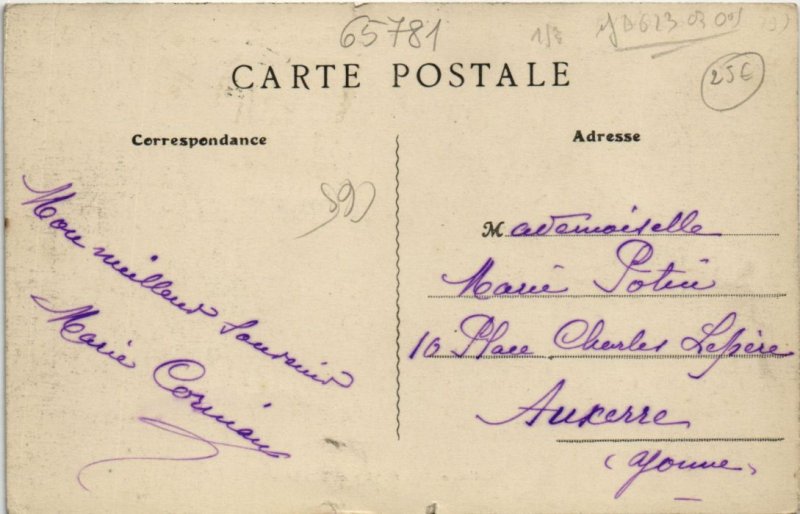 65781
25€
CARTE POSTALE
Correspondance
Adresse
89)
Mon meilleur souvenir
Marie
Mademoiselle
Marie Potin
10 Place Charles Lepère
Auxerre
(Yonne)